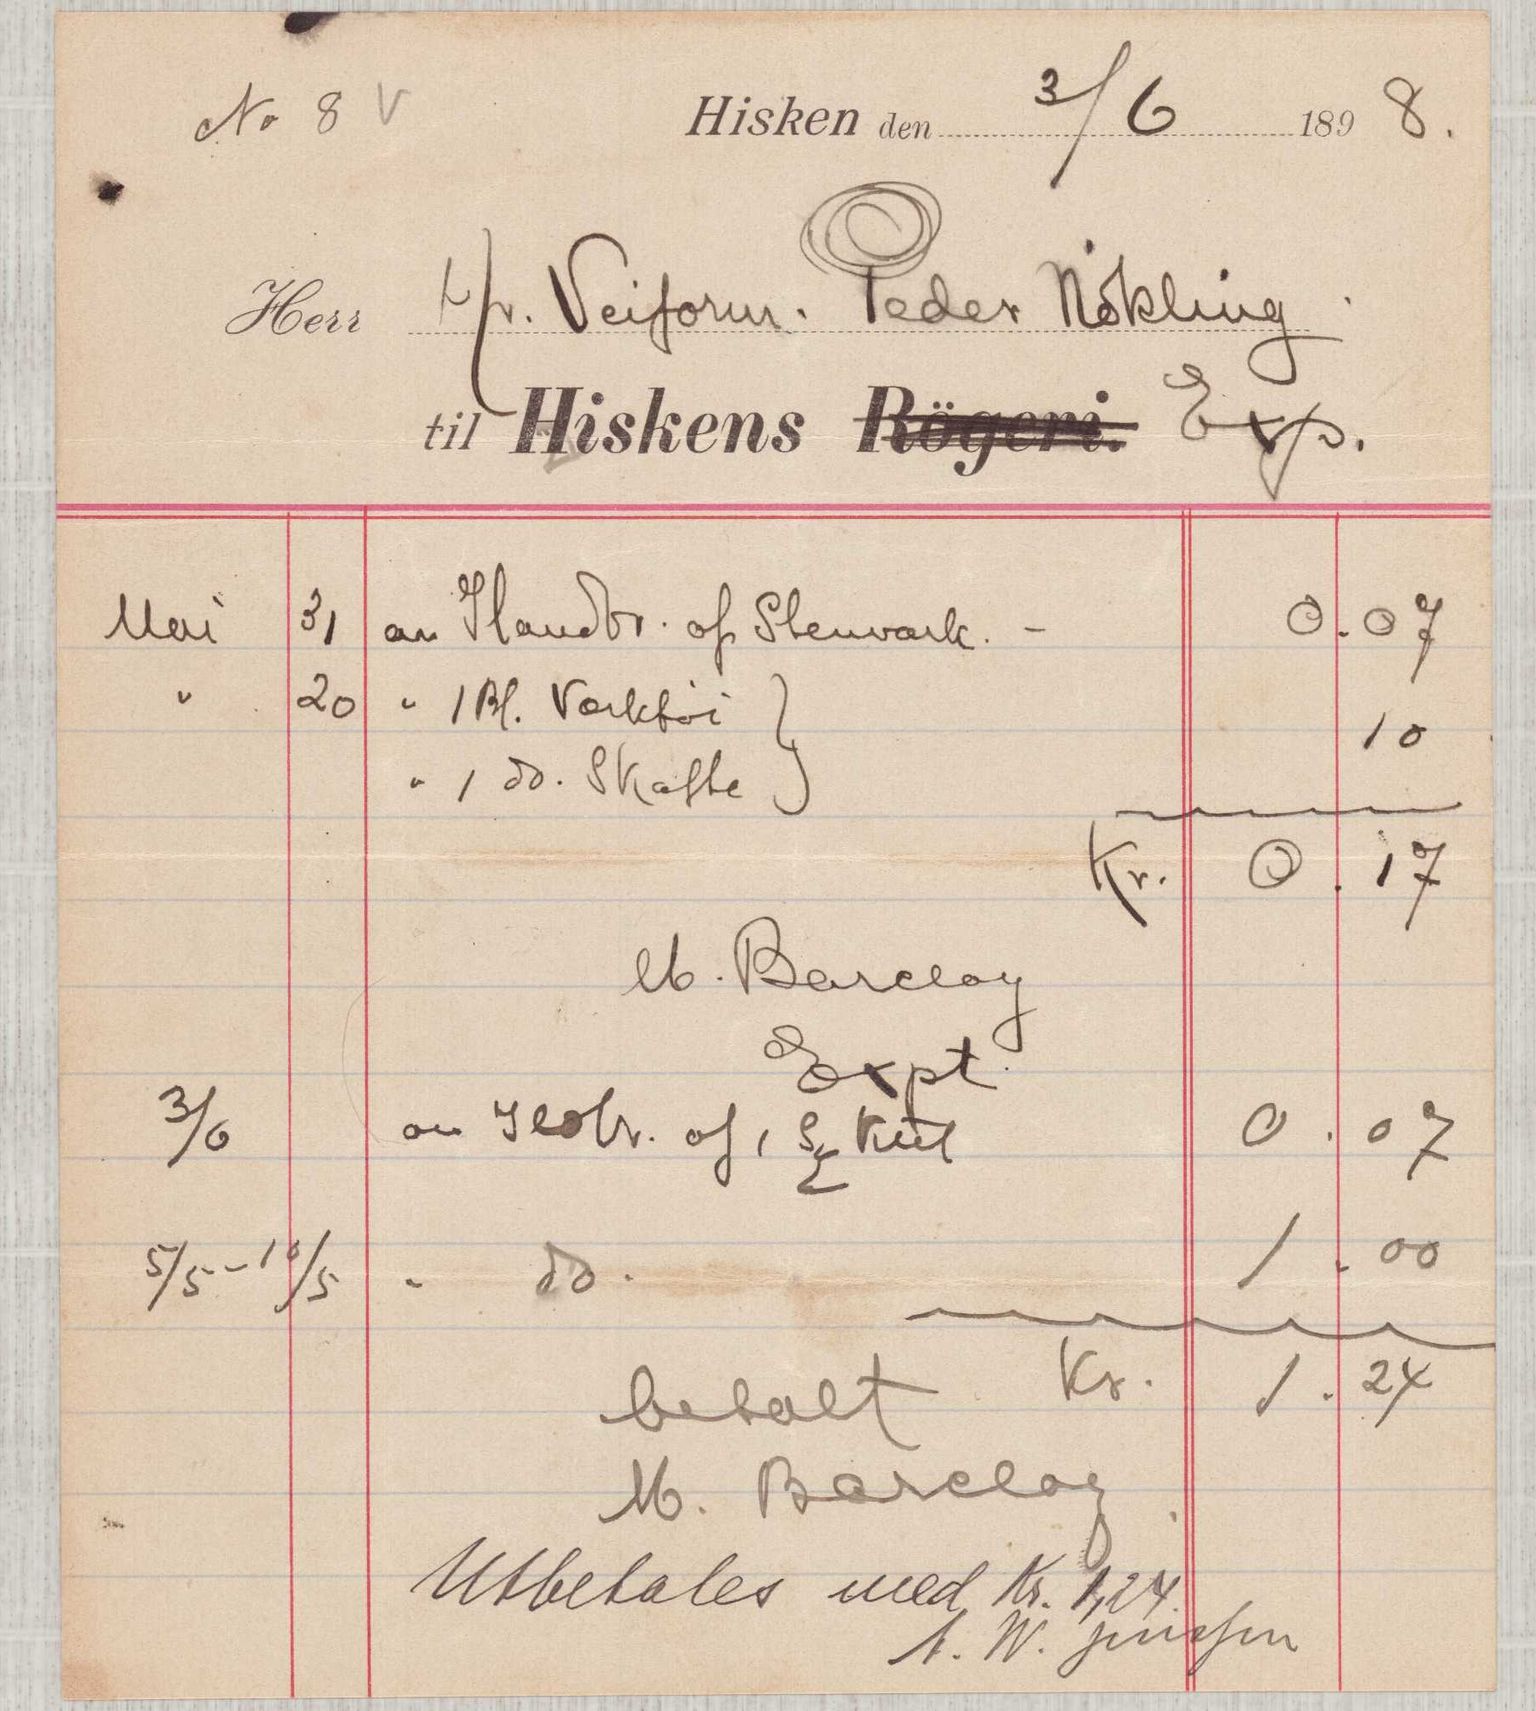 No 8 V
Hisken den 3/6 1898.
Herr Hr. Veiform. Peder Nökling
til Hiskens Rögeri. Exp.
Mai 31 an Ilandbr. af Stenvark. - 0.07
" 20 " 1 Bl. Værktöi
" 1 do. Skafte 10
Kr. 0.17
M. Barclay
Expt.
3/6 an af 1 Kul 0.07
5/5 - 10/5 " do. 1.00
Kr. 1.24
betalt
M. Barclay
Utbetales med Kr. 1,24.
A. W. Jenssen